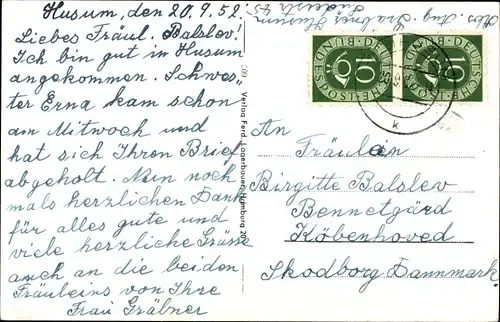 Husum, den 20.9.52.
Liebes Fräul. Balslev!
Ich bin gut in Husum
angekommen. Schwes-
ter Erna kam schon
am Mittwoch und
hat sich Ihren Brief
abgeholt. Nun noch
mals herzlichen Dank
für alles gute und
viele herzliche Grüsse
auch an die beiden
Fräuleins von Ihre
Frau Gräbner
Verlag Ferd. Lagerbauer, Hamburg 20
Husum
DEUTSCHE BUNDESPOST
10
DEUTSCHE BUNDESPOST
10
k
An
Fräulein
Birgitte Balslev
Bennetgård
Köbenhoved
Skodborg Dannmark